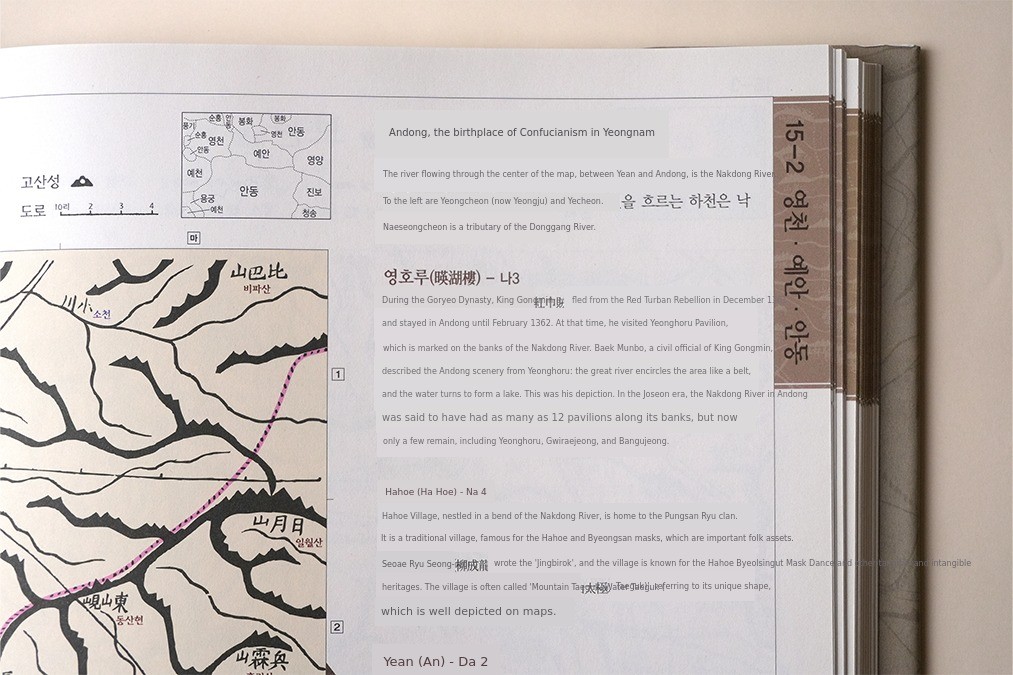 순흥 안동 봉화 봉화
풍기 순흥 영천 영천 안동
안동 예안 영양
예천
안동 진보
용궁
예천 청송
고산성
도로 10리 2 3 4
마
Andong, the birthplace of Confucianism in Yeongnam
The river flowing through the center of the map, between Yean and Andong, is the Nakdong River
To the left are Yeongcheon (now Yeongju) and Yecheon. 을 흐르는 하천은 낙
Naeseongcheon is a tributary of the Donggang River.
영호루(暎湖樓) – 나3
During the Goryeo Dynasty, King 紅巾賊 fled from the Red Turban Rebellion in December
and stayed in Andong until February 1362. At that time, he visited Yeonghoru Pavilion,
which is marked on the banks of the Nakdong River. Baek Munbo, a civil official of King Gongmin,
described the Andong scenery from Yeonghoru: the great river encircles the area like a belt,
and the water turns to form a lake. This was his depiction. In the Joseon era, the Nakdong River in Andong
was said to have had as many as 12 pavilions along its banks, but now
only a few remain, including Yeonghoru, Gwiraejeong, and Bangujeong.
Hahoe (Ha Hoe) - Na 4
Hahoe Village, nestled in a bend of the Nakdong River, is home to the Pungsan Ryu clan.
It is a traditional village, famous for the Hahoe and Byeongsan masks, which are important folk assets.
Seoae Ryu Seong- 柳成龍 wrote the 'Jingbirok', and the village is known for the Hahoe Byeolsingut Mask Dance and intangible
heritages. The village is often called 'Mountain 太極 referring to its unique shape,
which is well depicted on maps.
Yean (An) - Da 2
15-2 영천 · 예안 · 안동
山巴比
비파산
川小
소천
1
山月日
일월산
峴山東
동산현
2
山霖興